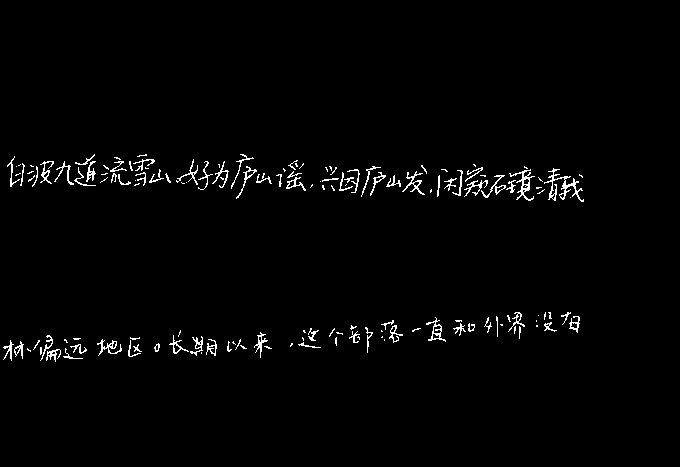 白波九道流雪山,好为庐山谣,兴因庐山发,闲窥石镜清我
林偏远地区。长期以来,这个部落一直和外界没有